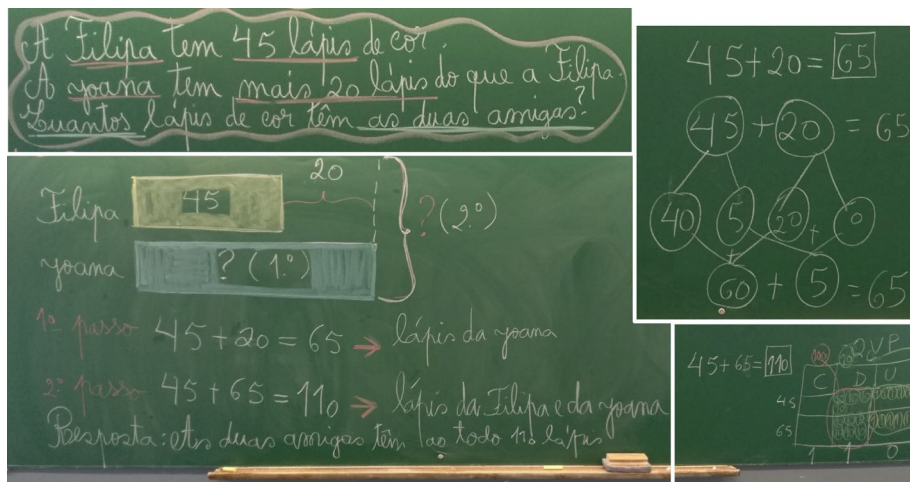 A Filipa tem 45 lápis de cor.
A Joana tem mais 20 lápis do que a Filipa.
Quantos lápis de cor têm as duas amigas?
20
Filipa 45
? (2.º)
Joana ? (1.º)
1º passo 45 + 20 = 65 → lápis da Joana
2º passo 45 + 65 = 110 → lápis da Filipa e da Joana
Resposta: As duas amigas têm ao todo 110 lápis
45 + 20 = 65
45 + 20 = 65
40 5 20 + 0
+
60 + 5 = 65
45 + 65 = 110
100
QVP
C D U
45
65
1 1 0